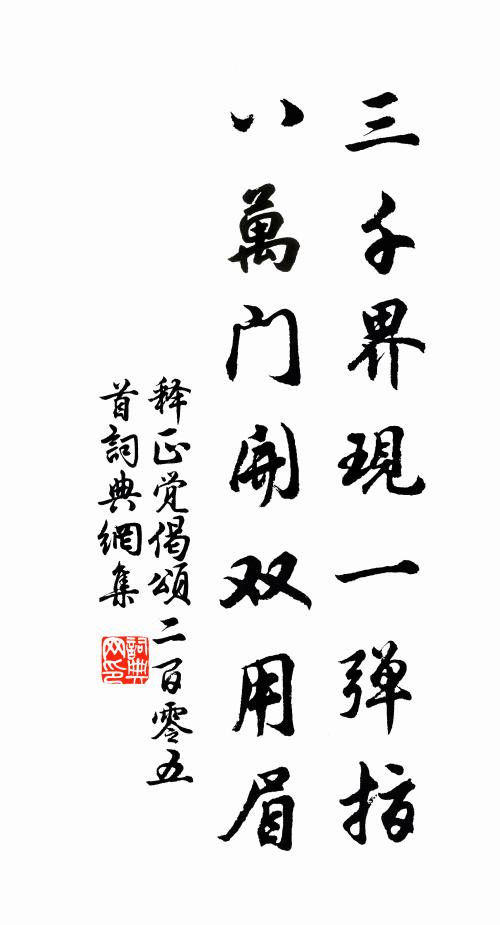 三千界現一弹指
八萬门開双用眉
释正觉偈頌二百零五
首詞典網集
詞典网印